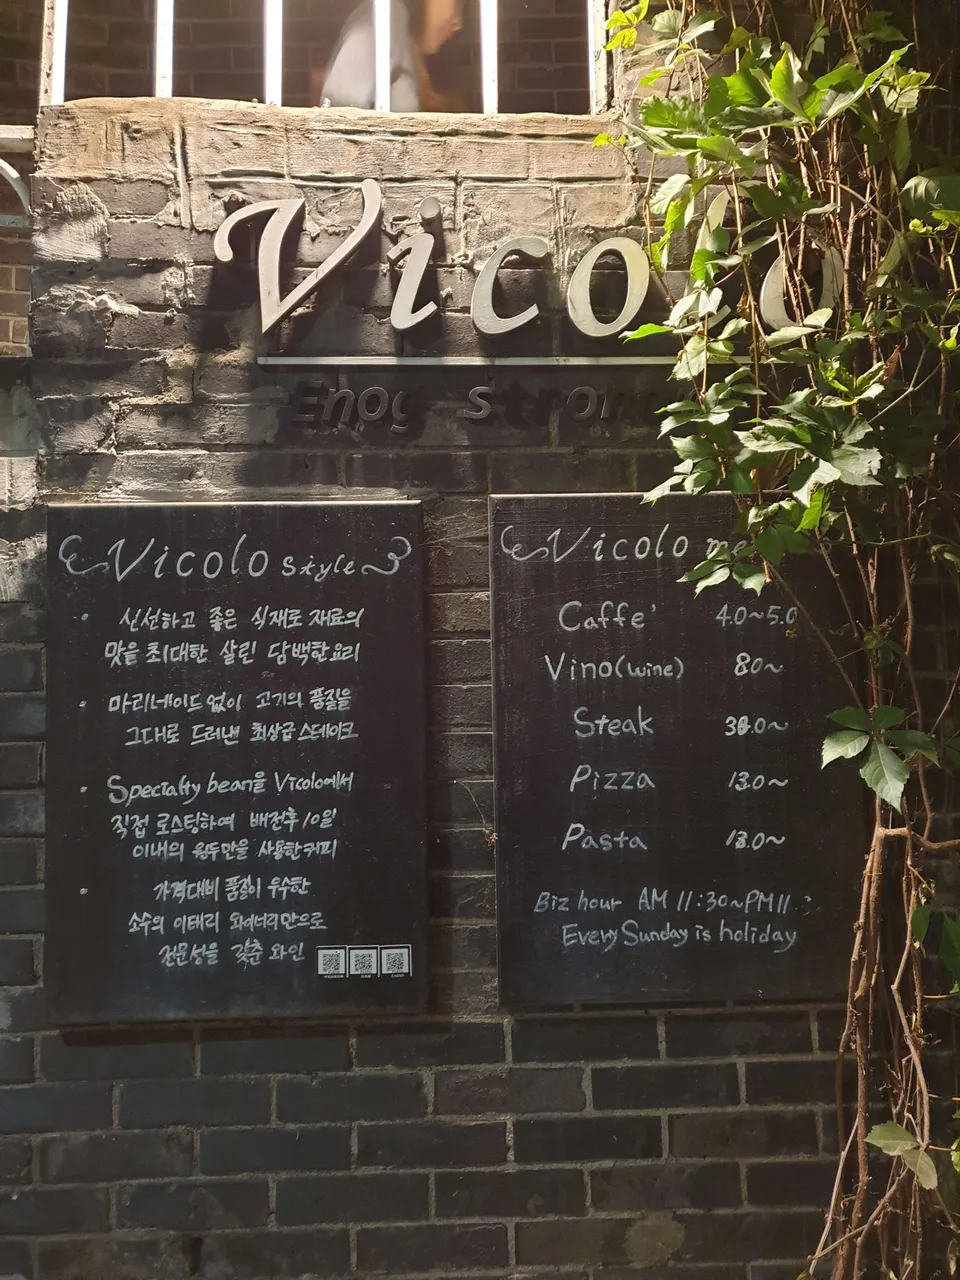 Vicolo
Enog Stron
Vicolo style
신선하고 좋은 식재로 재료의
맛을 최대한 살린 담백한 요리
마리네이드 없이 고기의 품질을
그대로 드러낸 최상급 스테이크
Specialty bean을 Vicolo에서
직접 로스팅하여 배전후 10일
이내의 원두만을 사용한 커피
가격대비 품질이 우수한
소수의 이태리 와이너리만으로
전문성을 갖춘 와인
Vicolo me
Caffe' 4.0~5.0
Vino(wine) 8.0~
Steak 38.0~
Pizza 13.0~
Pasta 13.0~
Biz hour AM 11:30~PM11
Every Sunday is holiday